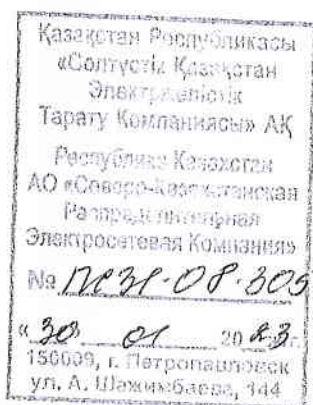 Қазақстан Республикасы
«Солтүстік Қазақстан
Электржелістік
Тарату Компаниясы» АҚ
Республика Казахстан
АО «Северо-Казахстанская
Распределительная
Электросетевая Компания»
№ ПЭ31-08-305
«30» 01 2023 г.
150009, г. Петропавловск
ул. А. Шажимбаева, 144